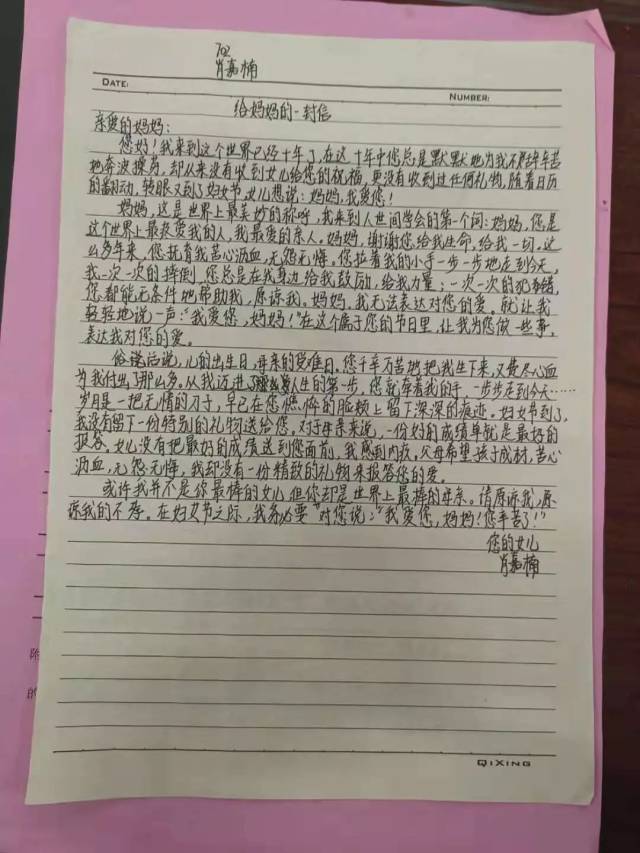 702
肖嘉楠
DATE:
NUMBER:
给妈妈的一封信
亲爱的妈妈：
您好！我来到这个世界已经十年了，在这十年中您总是默默地为我不辞辛苦
地奔波操劳，却从来没有收到女儿给您的祝福，更没有收到过任何礼物，随着日历
的翻动，转眼又到了妇女节，女儿想说：妈妈，我爱您！
妈妈，这是世界上最美妙的称呼，我来到人世间学会的第一个词：妈妈，您是
这个世界上最疼爱我的人，我最爱的亲人。妈妈，谢谢您给我生命，给我一切。这
么多年来，您抚育我苦心沥血，无怨无悔。您拉着我的小手一步一步地走到今天，
我一次一次的摔倒，您总是在我身边给我鼓励，给我力量；一次一次的犯错，
您都能无条件地帮助我，原谅我。妈妈，我无法表达对您的爱。就让我
轻轻地说一声："我爱您，妈妈！"在这个属于您的节日里，让我为您做一些事，
表达我对您的爱。
俗话说，儿的出生日，母亲的受难日。您千辛万苦地把我生下来，又费尽心血
为我付出了那么多。从我迈进了人生的第一步，您就牵着我的手，一步步走到今天……
岁月是一把无情的刀子，早已在您憔悴的脸颊上留下深深的痕迹。妇女节到了，
我没有留下一份特别的礼物送给您，对于母亲来说，一份好的成绩单就是最好的
报答。女儿没有把最好的成绩送到您面前，我感到内疚。父母希望孩子成材，苦心
沥血，无怨无悔，我却没有一份精致的礼物来报答您的爱。
或许我并不是你最棒的女儿，但你却是世界上最棒的母亲。请原谅我，原
谅我的不孝。在妇女节之际，我务必要"对您说："我爱您，妈妈！您辛苦了！"
您的女儿
肖嘉楠
QIXING
附
的